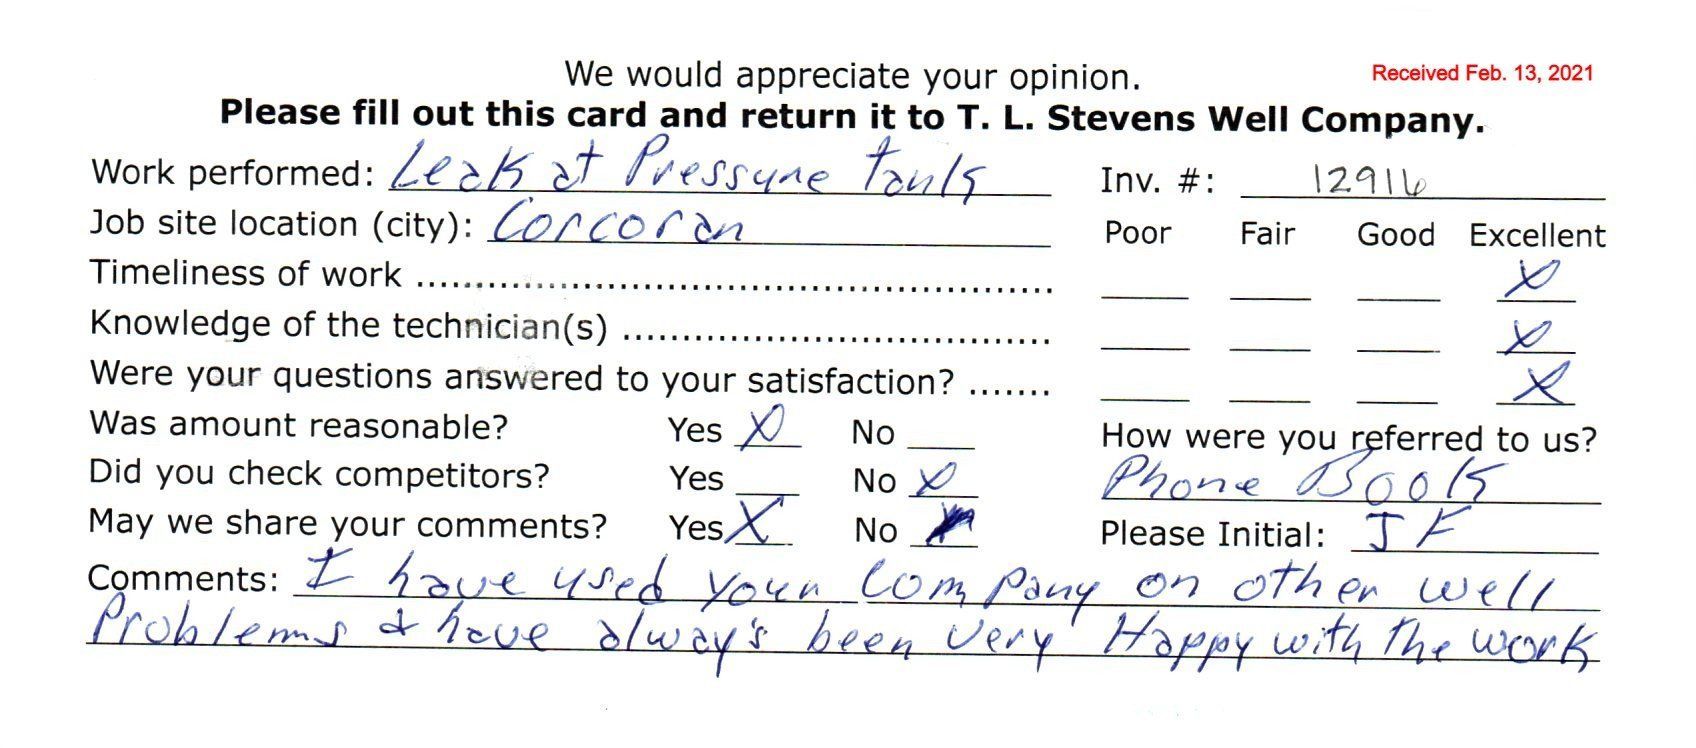 We would appreciate your opinion.
Received Feb. 13, 2021
Please fill out this card and return it to T. L. Stevens Well Company.
Work performed: Leak at Pressure Tank Inv. #: 12916
Job site location (city): Corcoran Poor Fair Good Excellent
Timeliness of work ........................................................ ____ ____ ____ X
Knowledge of the technician(s) ..................................... ____ ____ ____ X
Were your questions answered to your satisfaction? ....... ____ ____ ____ X
Was amount reasonable? Yes X No ____ How were you referred to us?
Did you check competitors? Yes ____ No X Phone Book
May we share your comments? Yes X No ____ Please Initial: JF
Comments: I have used your Company on other well
Problems & have alway's been very Happy with the work